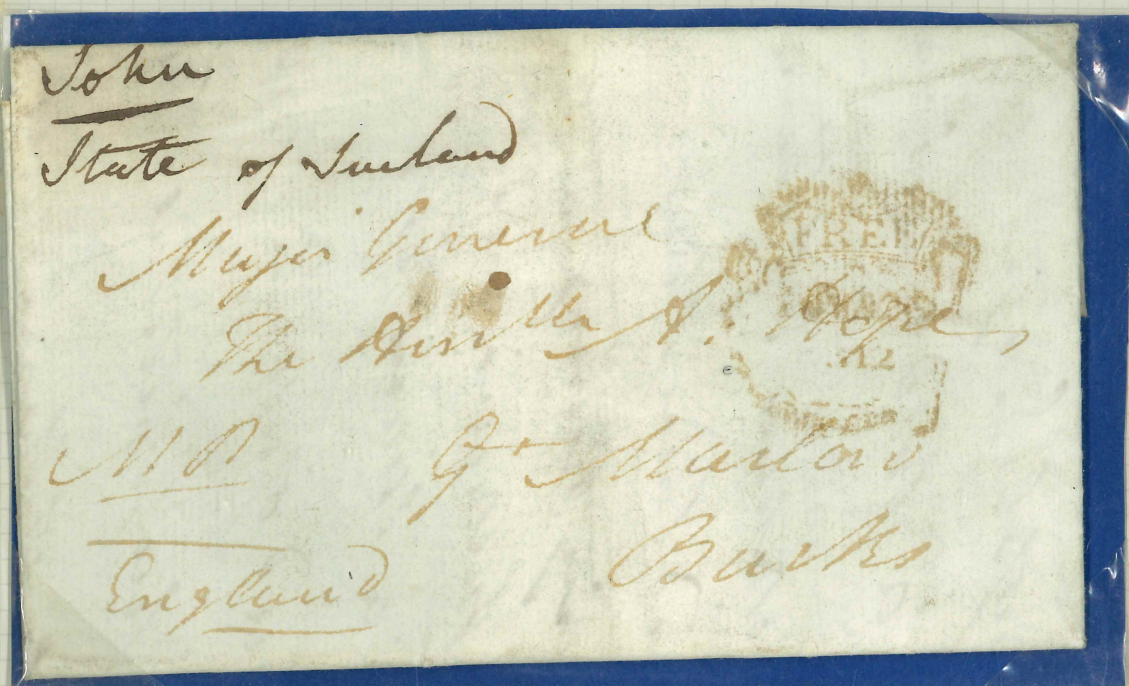 John
State of Ireland
Major General
The Honble A. Hope,
MP
Gt Marlow
Bucks
England
FREE